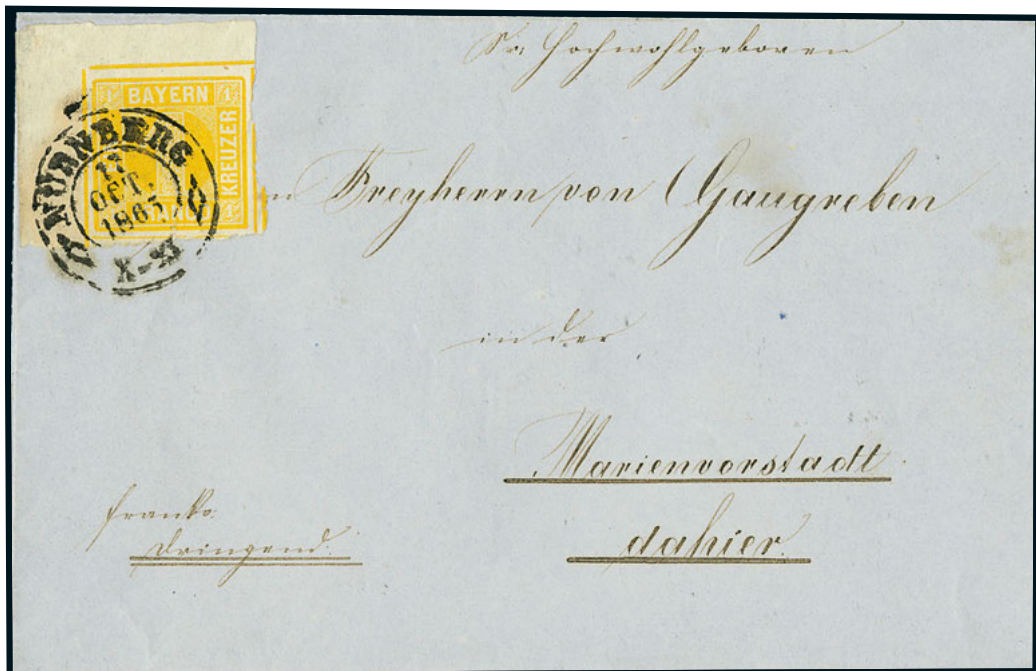 1 BAYERN 1
KREUZER
1
NÜRNBERG
OCT.
1863
X-XI
Sr. Hochwohlgeboren
Freyherrn von Gaugreben
in der
Marienvorstadt
dahier.
franko.
Dringend.